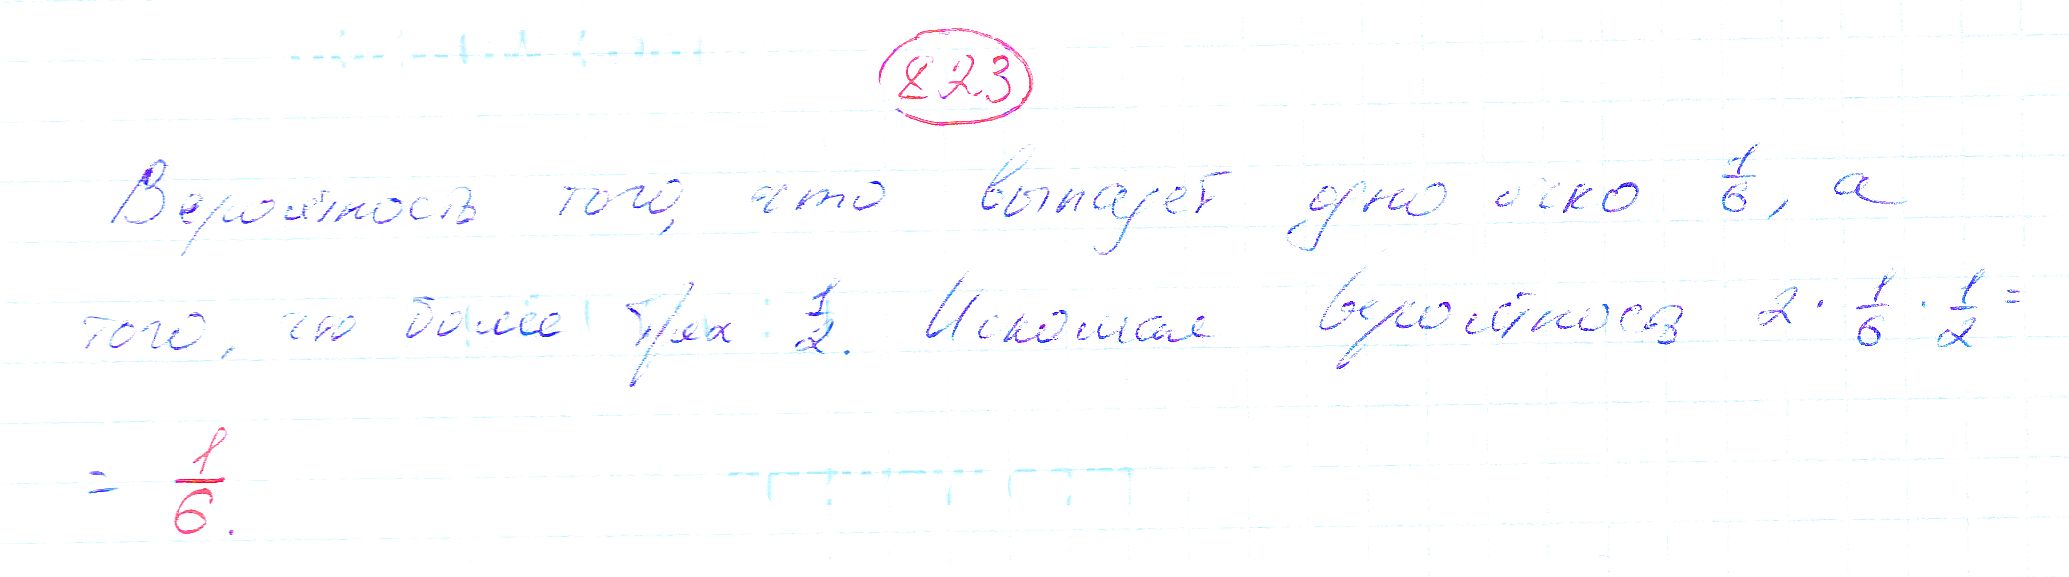 223
Вероятность того, что выпадет одно очко 1/6, а
того, что более трех 1/2. Искомая вероятность 2 · 1/6 · 1/2 =
= 1/6.